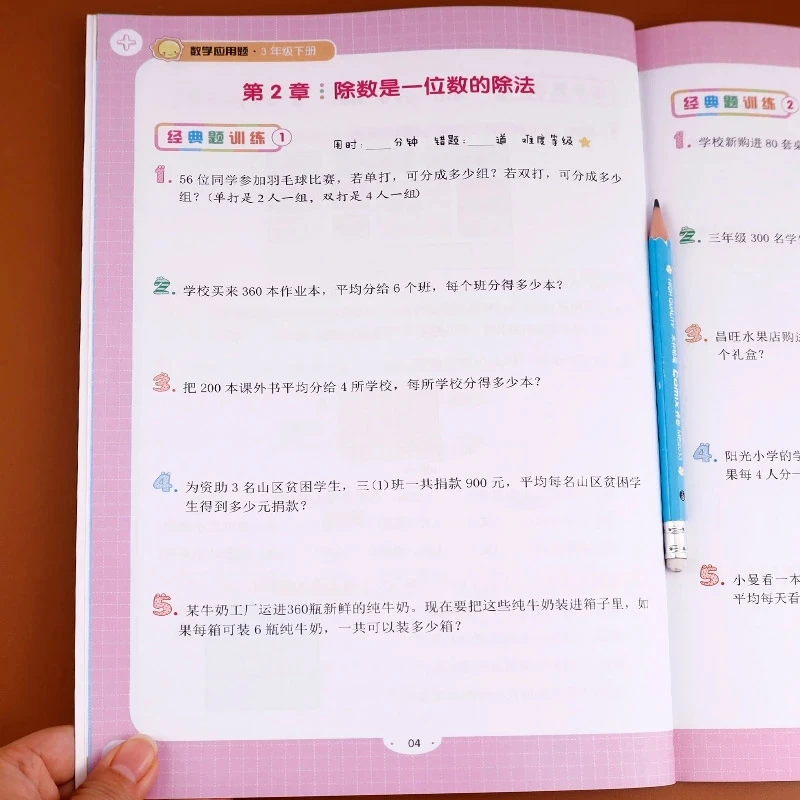 数学应用题·3年级下册
第2章：除数是一位数的除法
经典题训练1
用时：____分钟 错题：____道 难度等级
1. 56位同学参加羽毛球比赛，若单打，可分成多少组？若双打，可分成多少
组？(单打是2人一组，双打是4人一组)
2. 学校买来360本作业本，平均分给6个班，每个班分得多少本？
3. 把200本课外书平均分给4所学校，每所学校分得多少本？
4. 为资助3名山区贫困学生，三(1)班一共捐款900元，平均每名山区贫困学
生得到多少元捐款？
5. 某牛奶工厂运进360瓶新鲜的纯牛奶。现在要把这些纯牛奶装进箱子里，如
果每箱可装6瓶纯牛奶，一共可以装多少箱？
04
经典题训练2
1. 学校新购进80套
2. 三年级300名学
3. 昌旺水果店购
个礼盒？
4. 阳光小学的
果每4人分一
5. 小曼看一本
平均每天看